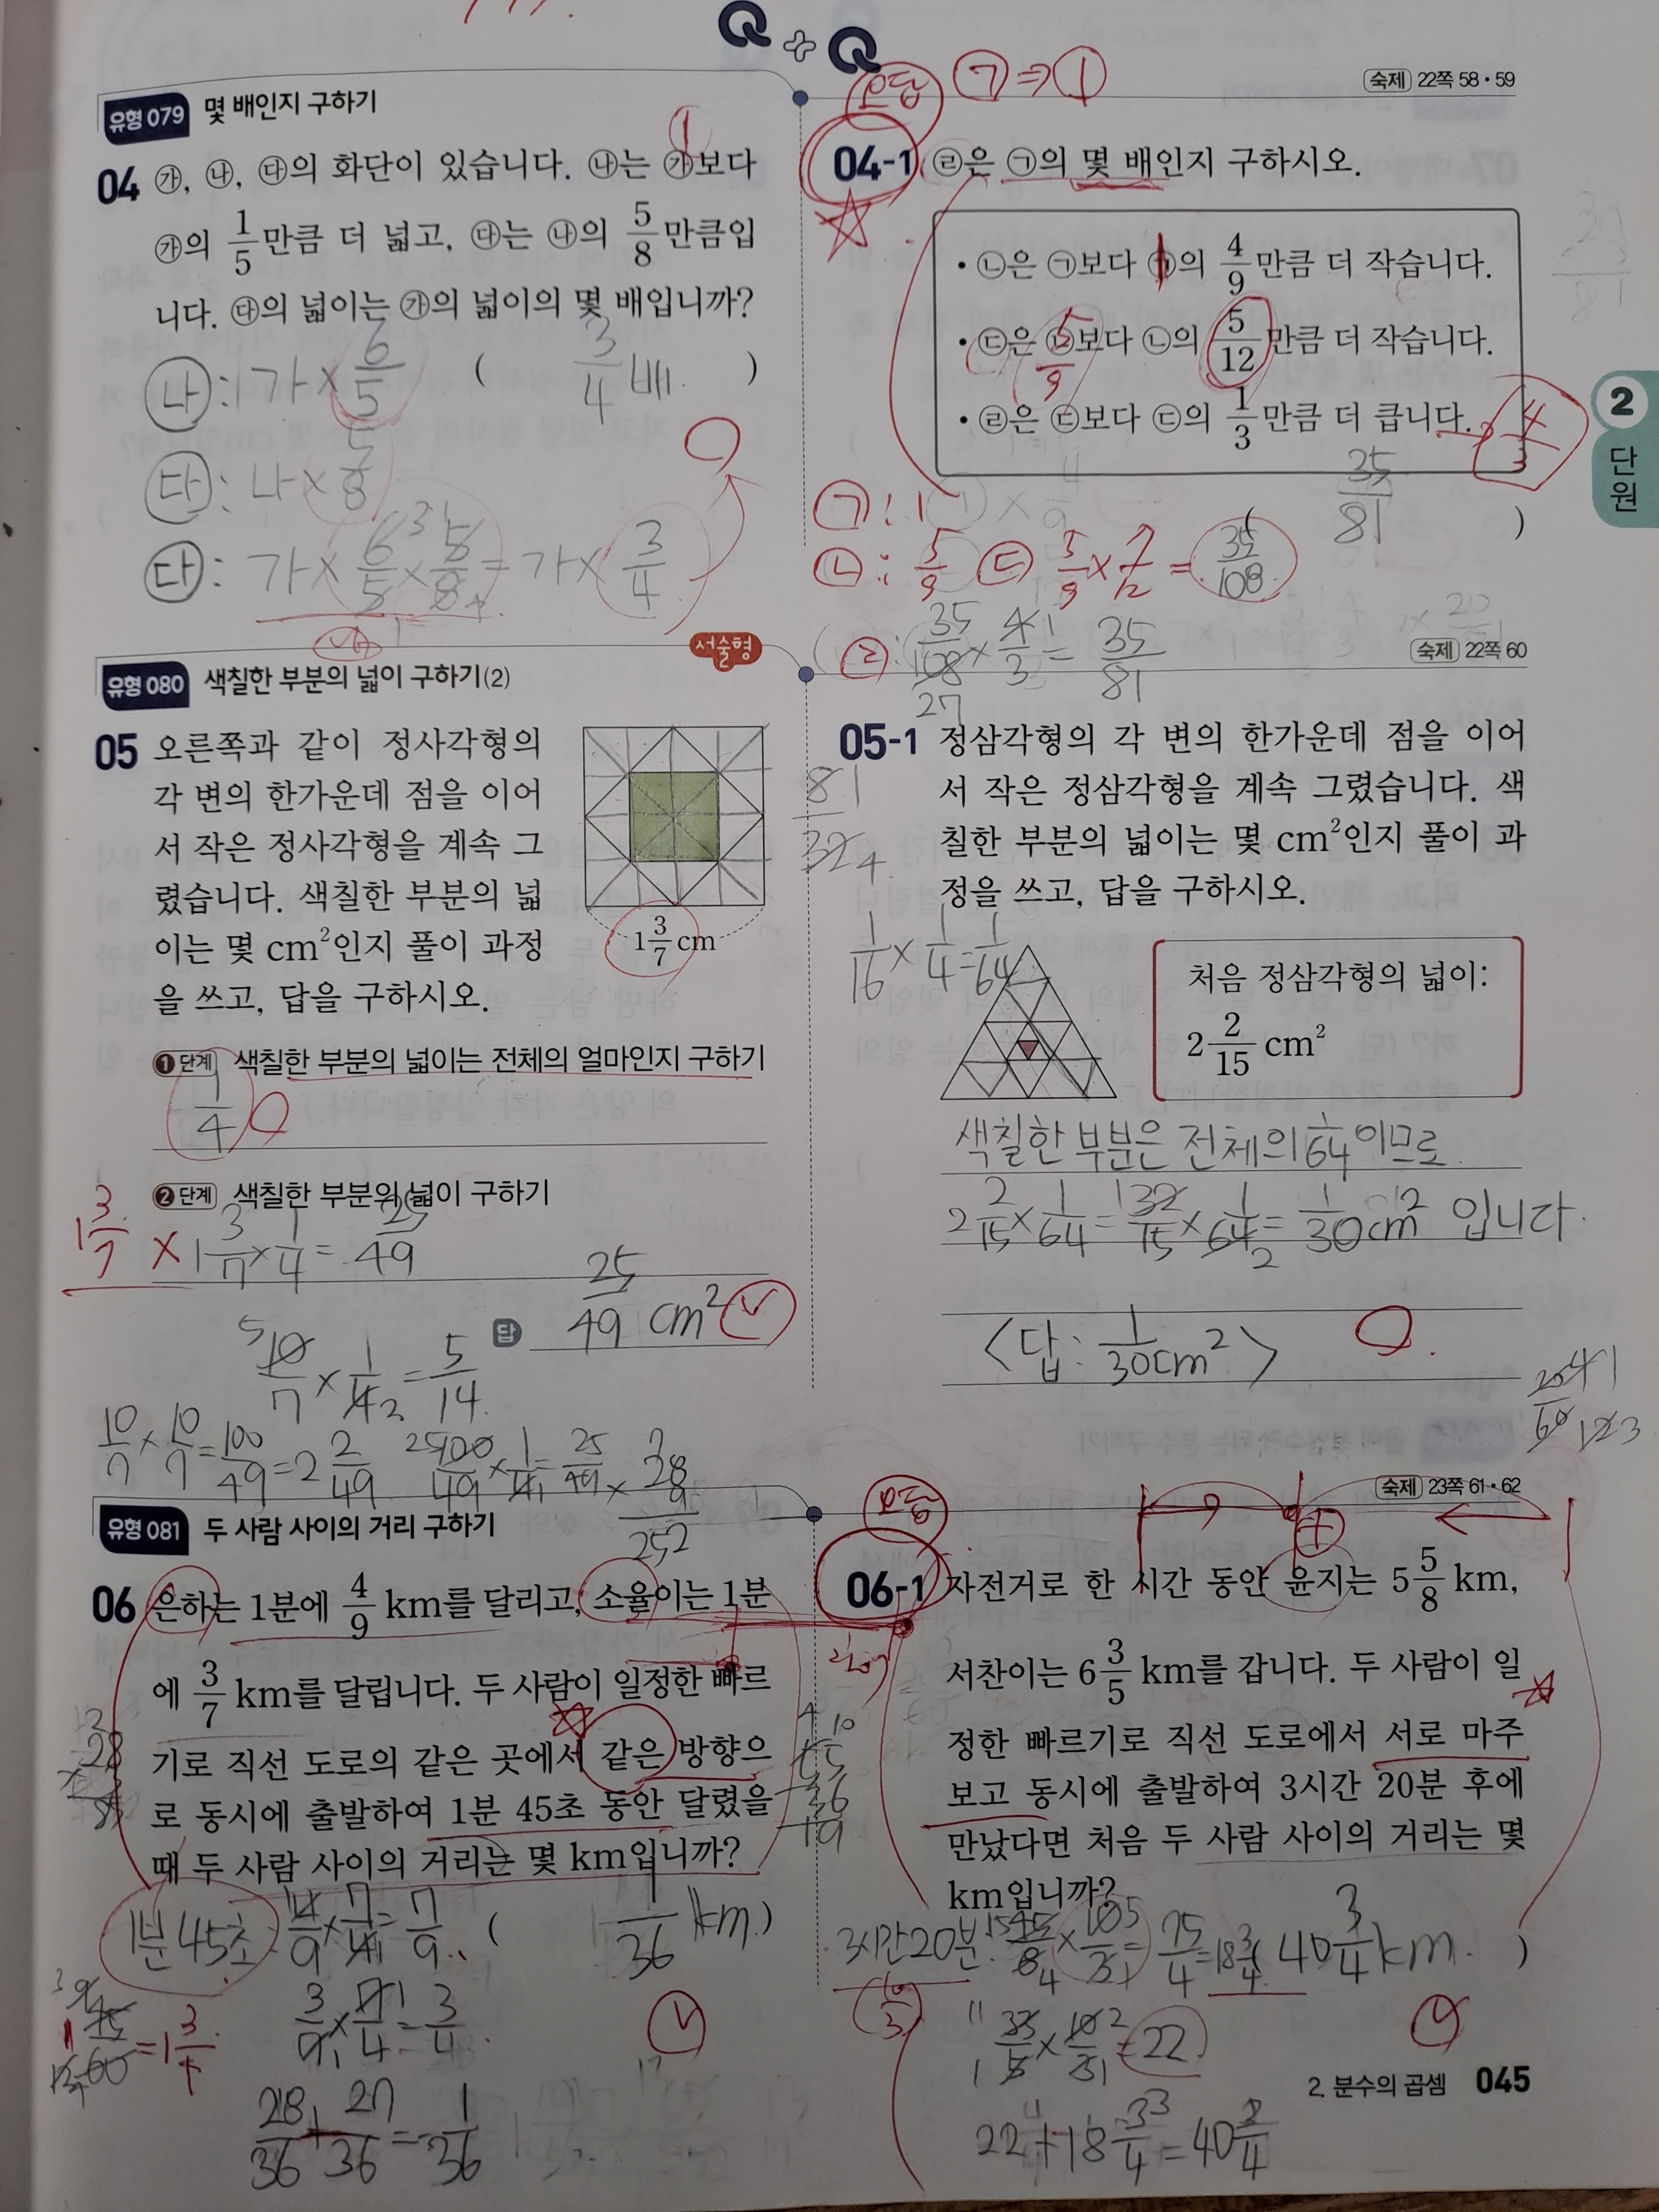 Q+Q
유형 079 몇 배인지 구하기
04 ㉮, ㉯, ㉰의 화단이 있습니다. ㉯는 ㉮보다
㉮의 1/5만큼 더 넓고, ㉰는 ㉯의 5/8만큼입
니다. ㉰의 넓이는 ㉮의 넓이의 몇 배입니까?
( 3/4 배 )
나 : 가 × 6/5
다 : 나 × 5/8
다 : 가 × 6/5 × 5/8 = 가 × 3/4
오답 ㄱ ⇒ 1
숙제 22쪽 58·59
04-1 ㉣은 ㉠의 몇 배인지 구하시오.
• ㉡은 ㉠보다 ㉠의 4/9만큼 더 작습니다.
• ㉢은 ㉡보다 ㉡의 5/12만큼 더 작습니다.
• ㉣은 ㉢보다 ㉢의 1/3만큼 더 큽니다. 4/3
( 35/81 )
ㄱ : 1
ㄴ : 5/9 ㄷ 5/9 × 7/12 = 35/108
ㄹ : 35/108 × 4/3 = 35/81
27
2
단원
유형 080 색칠한 부분의 넓이 구하기(2) 서술형
05 오른쪽과 같이 정사각형의
각 변의 한가운데 점을 이어
서 작은 정사각형을 계속 그
렸습니다. 색칠한 부분의 넓
이는 몇 cm²인지 풀이 과정
을 쓰고, 답을 구하시오.
1 3/7 cm
❶단계 색칠한 부분의 넓이는 전체의 얼마인지 구하기
1/4
❷단계 색칠한 부분의 넓이 구하기
1 3/7 × 1 3/7 × 1/4 = 25/49
답 25/49 cm²
10/7 × 1/4 = 5/14
10/7 × 10/7 = 100/49 = 2 2/49 100/49 × 1/4 = 25/49
숙제 22쪽 60
05-1 정삼각형의 각 변의 한가운데 점을 이어
서 작은 정삼각형을 계속 그렸습니다. 색
칠한 부분의 넓이는 몇 cm²인지 풀이 과
정을 쓰고, 답을 구하시오.
1/16 × 1/4 = 1/64
처음 정삼각형의 넓이:
2 2/15 cm²
색칠한 부분은 전체의 1/64 이므로
2 2/15 × 1/64 = 32/15 × 1/64 = 1/30 cm² 입니다.
〈답 : 1/30 cm²〉
유형 081 두 사람 사이의 거리 구하기
06 은하는 1분에 4/9 km를 달리고, 소율이는 1분
에 3/7 km를 달립니다. 두 사람이 일정한 빠르
기로 직선 도로의 같은 곳에서 같은 방향으
로 동시에 출발하여 1분 45초 동안 달렸을
때 두 사람 사이의 거리는 몇 km입니까?
( 1/36 km )
1분 45초 4/9 × 7/4 = 7/9
= 1 3/4
28/36 - 27/36 = 1/36
오답
숙제 23쪽 61·62
06-1 자전거로 한 시간 동안 윤지는 5 5/8 km,
서찬이는 6 3/5 km를 갑니다. 두 사람이 일
정한 빠르기로 직선 도로에서 서로 마주
보고 동시에 출발하여 3시간 20분 후에
만났다면 처음 두 사람 사이의 거리는 몇
km입니까?
( 40 3/4 km )
3시간 20분 : 45/8 × 10/3 = 75/4 = 18 3/4
10/3
33/5 × 10/3 = 22
22 + 18 3/4 = 40 3/4
2. 분수의 곱셈 045